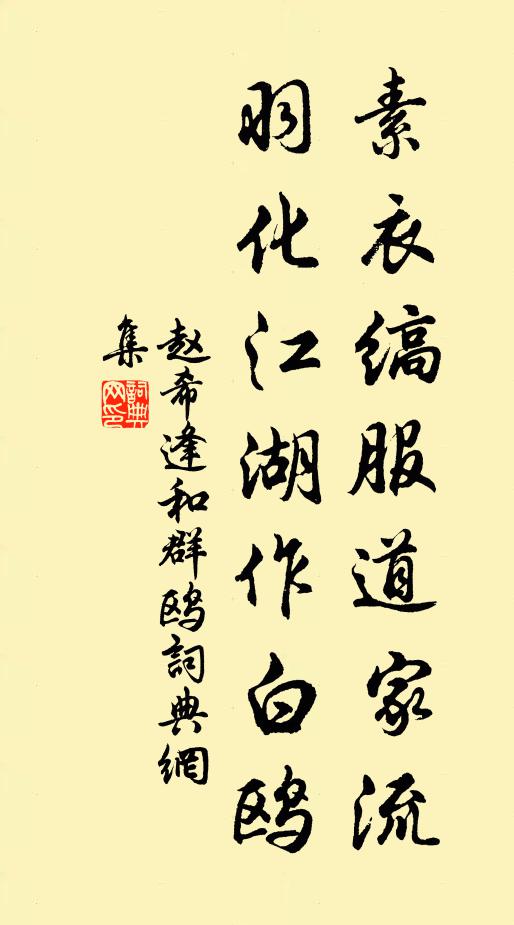 素衣缟服道家流
羽化江湖作白鸥
赵希逢和群鸥詞典網
集
詞典
网印